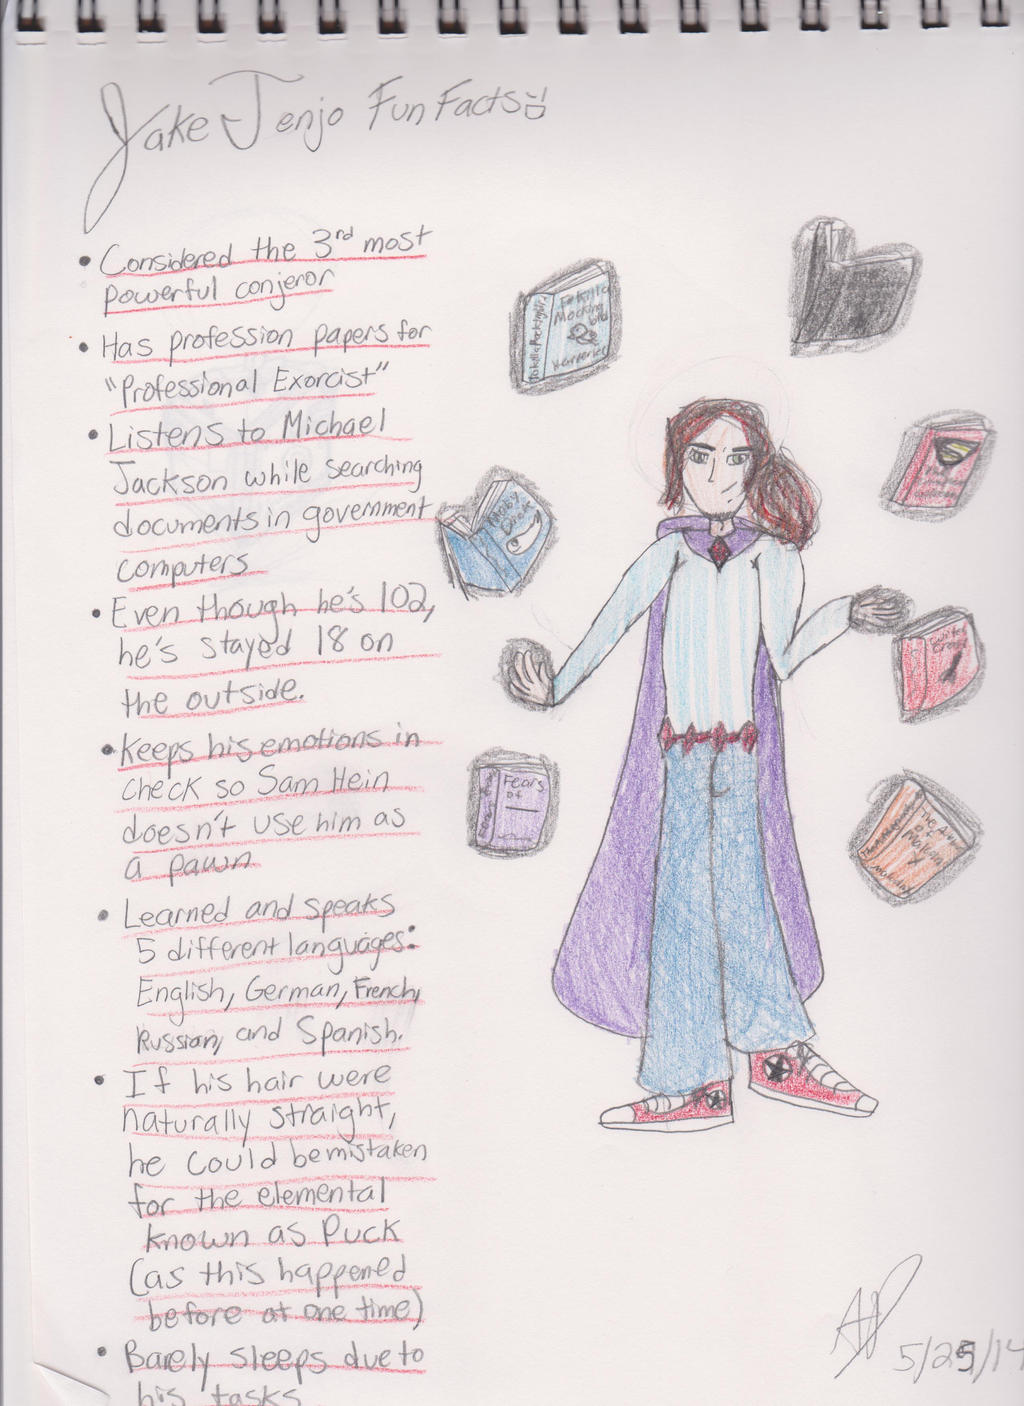 Jake Jenjo Fun Facts
• Considered the 3rd most
powerful conjeror
• Has profession papers for
"Professional Exorcist"
• Listens to Michael
Jackson while searching
documents in government
computers
• Even though he's 102,
he's stayed 18 on
the outside.
• Keeps his emotions in
check so Sam Hein
doesn't use him as
a pawn
• Learned and speaks
5 different languages:
English, German, French,
Russian, and Spanish.
• If his hair were
naturally straight,
he could be mistaken
for the elemental
known as Puck
(as this happened
before at one time)
• Barely sleeps due to
his tasks
Mocking
Moby
Dick
Fears
of
of
Malcolm
X
5/25/14